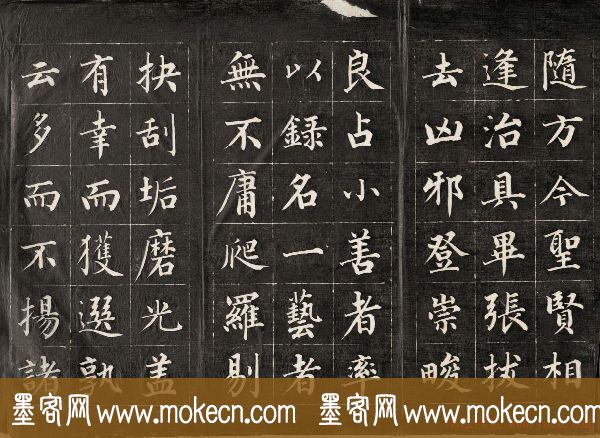 隨方今聖賢相
逢治具畢張拔
去凶邪登崇畯
良占小善者率
以録名一藝者
無不庸爬羅剔
抉刮垢磨光盖
有幸而獲選孰
云多而不揚諸
墨客网 www.mokecn.com 墨客网 www.mokecn.com